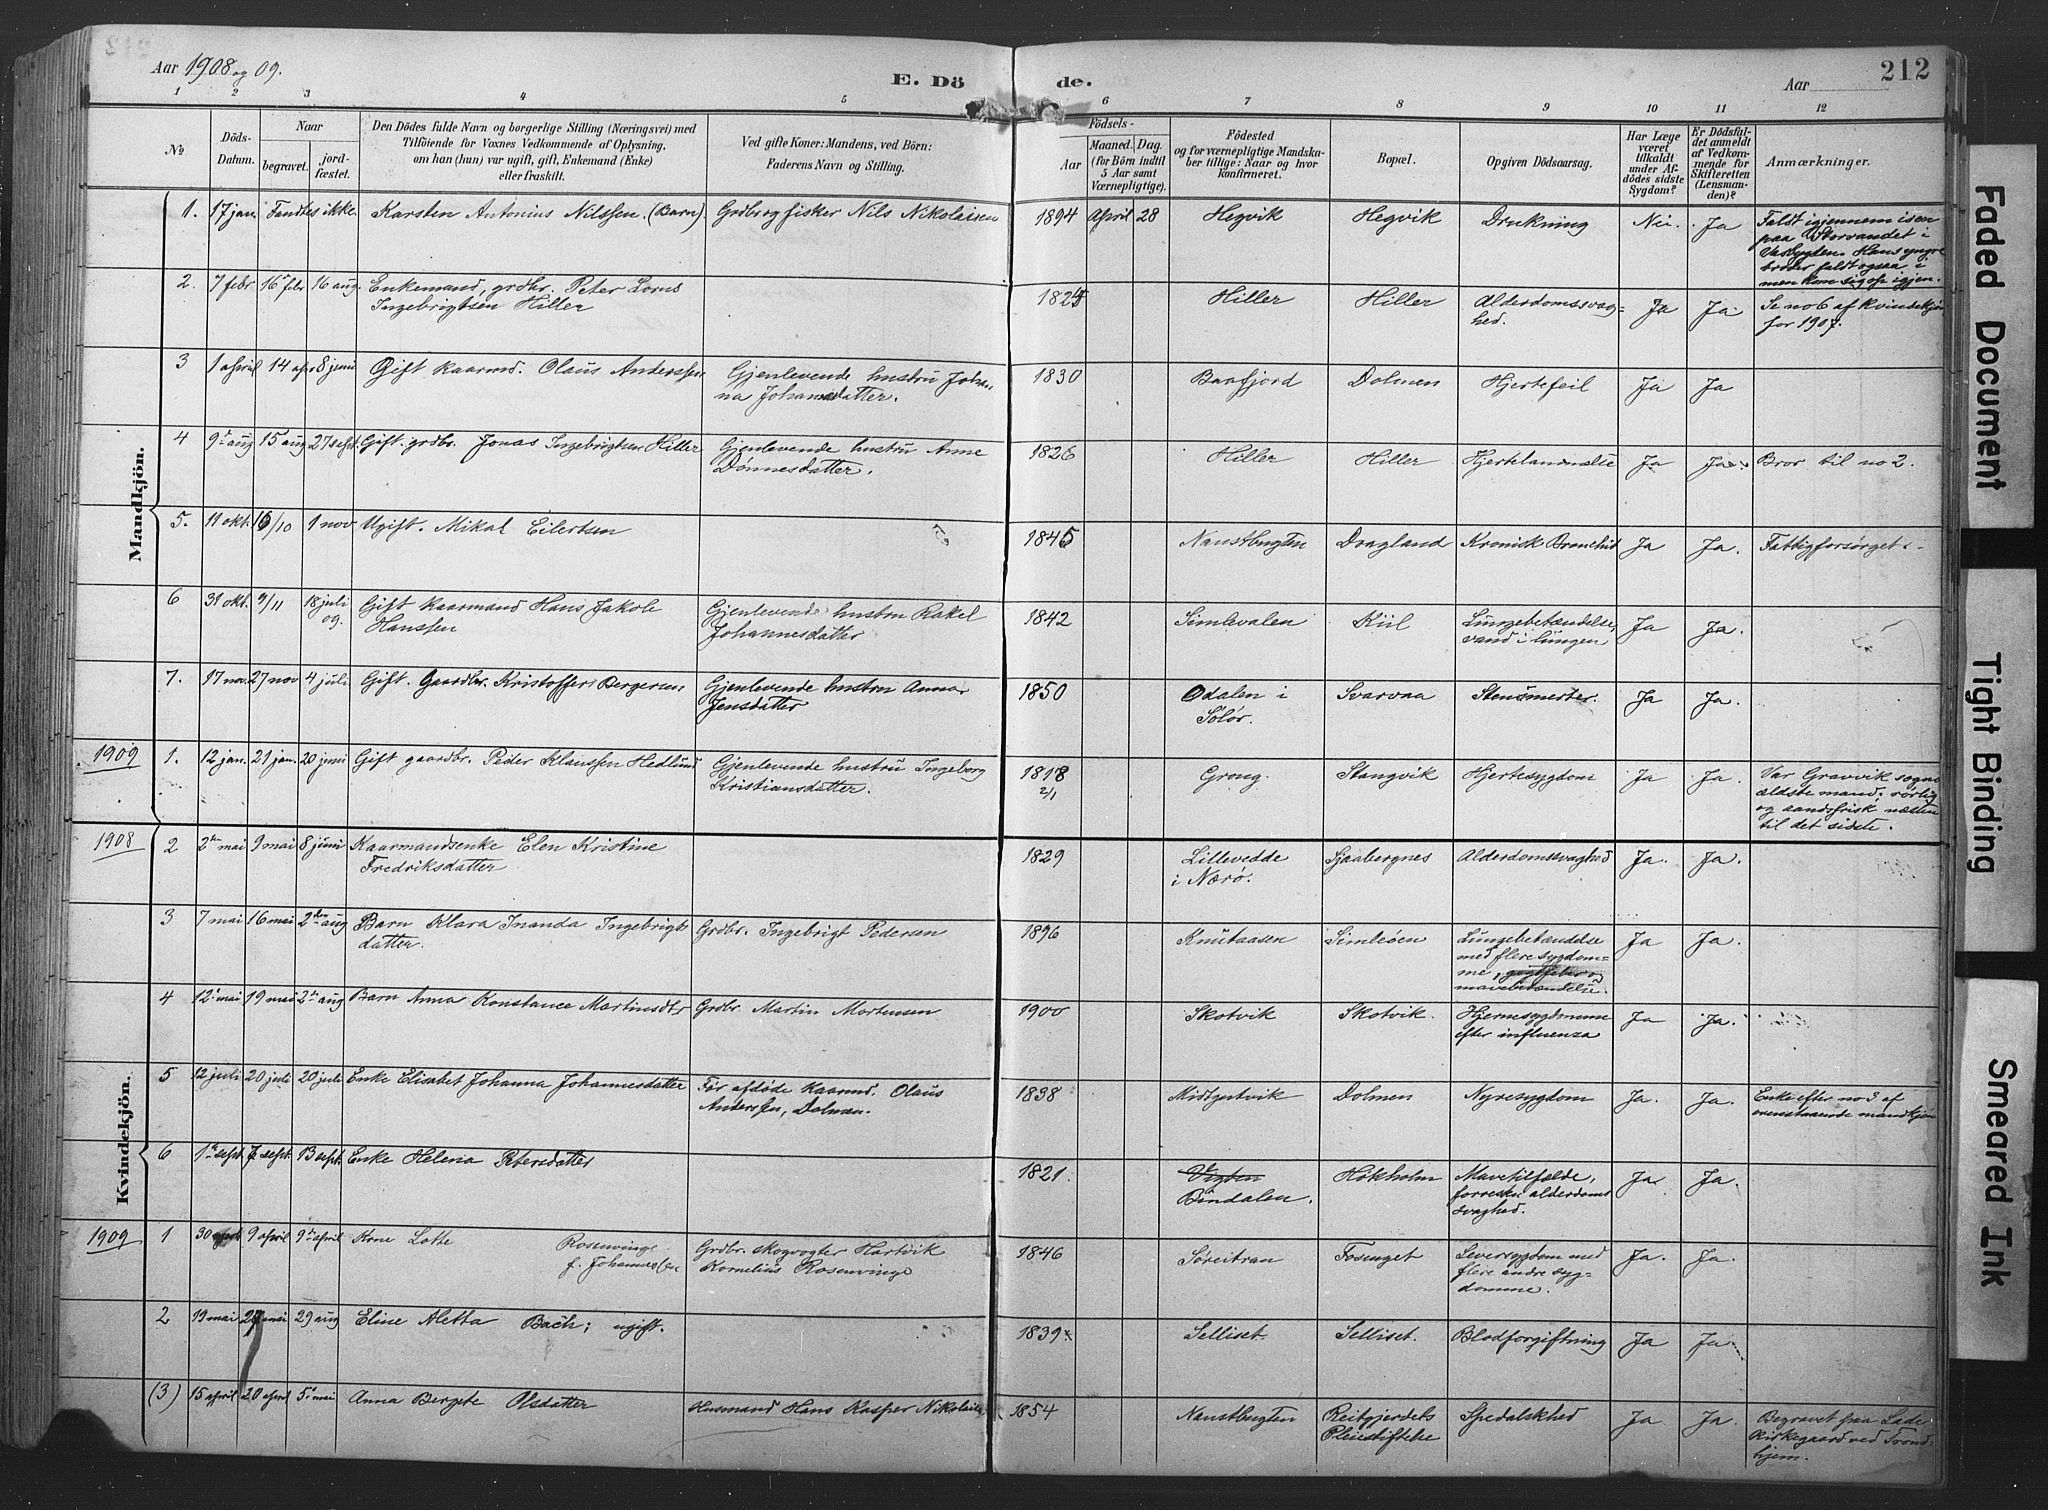 Aar 1908 og 09.
E. Dö de.
Aar
212
1 2 3 4 5 6 7 8 9 10 11 12
№
Döds-Datum.
Naar
begravet.
jord-fæstet.
Den Dödes fulde Navn og borgerlige Stilling (Næringsvei) med
Tilföiende for Voxnes Vedkommende af Oplysning,
om han (hun) var ugift, gift, Enkemand (Enke)
eller fraskilt.
Ved gifte Koner: Mandens, ved Börn:
Faderens Navn og Stilling.
Födsels-
Aar
Maaned. Dag.
(for Börn indtil
5 Aar samt
Værnepligtige).
Födested
og for værnepligtige Mandska-
ber tillige: Naar og hvor
konfirmeret.
Bopæl.
Opgiven Dödsaarsag.
Har Læge
været
tilkaldt
under Af-
dödes sidste
Sygdom?
Er Dödsfal-
det anmeldt
af Vedkom-
mende for
Skifteretten
(Lensman-
den)?
Anmærkninger.
Mandkjön.
1. 17 jan. Fandtes ikke. Karsten Antonius Nilssen. (Barn) Grdbr og fisker Nils Nikolaisen 1894 April 28 Hegvik Hegvik Drukning Nei. Ja Faldt igjennem isen
paa Storvandet i
. Hans yngre
broder faldt ogsaa i
men kom sig op igjen.
2. 7 febr 16 febr 16 aug. Enkemand, grdbr. Peter Lorns
Ingebrigtsen Hiller 1825 Hiller Hiller Alderdomssvag-
hed. Ja Ja Se no 6 af kvindekjøn
for 1907.
3 1 april 14 apr 8 juni Gift kaarmd. Olaus Anderssen Gjenlevende hustru Johan-
na Johannesdatter. 1830 Baafjord Dolmen Hjertefeil Ja Ja
4 9de aug 15 aug 27 sept. Gift. grdbr. Jonas Ingebrigtsen Hiller Gjenlevende hustru Anne
Dønnesdatter. 1826 Hiller Hiller Hjertelammelse Ja Ja Bror til no 2.
5. 11 okt. 16/10 1 nov Ugift. Mikal Eilertsen 1845 Naustbugten Dragland Kronisk Bronchit Ja Ja. Fattigforsørget.
6 31 okt. 9/11 18 juli
09. Gift kaarmand Hans Jakob
Hanssen Gjenlevende hustru Rakel
Johannesdatter 1842 Simlevalen Kiil Lungebetændelse,
vand i lungen Ja Ja.
7. 17 nov. 27 nov 4 juli Gift. Gaardbr. Kristoffer Bergersen Gjenlevende hustru Anna
Jensdatter 1850 Odalen i
Solør. Svarvaa Stensmerter. Ja Ja
1909 1. 12 jan. 21 jan. 20 juni Gift gaardbr. Peder Klaussen Hedlund Gjenlevende hustru Ingeborg
Kristiansdatter. 1818
2/1 Grong. Stangvik Hjertesygdom Ja Ja. Var Gravvik sogns
ældste mand. rørlig
og aandsfrisk næsten
til det sidste.
Kvindekjön.
1908 2 2den mai 9 mai 8 juni Kaarmandsenke Elen Kristine
Fredriksdatter 1829 Lillevedde
i Nærø. Sjaabergnes Alderdomssvaghed Ja. Ja.
3 7 mai 16 mai 2den aug Barn Klara Inanda Ingebrigts
datter. Grdbr. Ingebrigt Pedersen 1896 Knutaasen Simleøen Lungebetændelse
med flere sygdom-
me, gigtfeber og
mavebetændelse. Ja Ja.
4 12. mai 19 mai 2den aug Barn Anna Konstance Martinsdtr Grdbr. Martin Mortensen 1900 Skotvik Skotvik. Hjernesygdomme
efter influenza Ja Ja.
5 12 juli 20 juli 20 juli Enke Elisabet Johanna Johannesdatter Før afdøde kaarmd. Olaus
Anderssen, Dolmen. 1838 Midtgertvik Dolmen Nyresygdom Ja. Ja. Enke efter no 3 af
ovenstaaende mandkjøn
6 1ste sept. 7 sept. 13 sept. Enke Helena Petersdatter 1821. Vigten
Bindalen. Hökholm Mavetilfælde,
forresten alderdoms
svaghed. Ja. Ja.
1909 1 30 9 april 9de april Kone Lotte Rosenvinge
f. Johannessen Grdbr. skogvogter Hartvik
Kornelius Rosenvinge 1846 Søreitran Fosenget Leversygdom med
flere andre syg-
domme. Ja. Ja.
2 19 mai mai 29 aug Eline Aletta Bach; ugift. 1839 Selliset. Selliset. Blodforgiftning Ja Ja
(3) 15 april 20 april 5. mai Anna Bergete Olsdatter Husmand Hans Kasper Nikolaisen 1854 Naustbugten Reitgjerdets
Pleiestiftelse Spedalskhed Ja Ja. Begravet paa Lade
kirkegaard ved Trond-
hjem.
Faded Document
Tight Binding
Smeared Ink